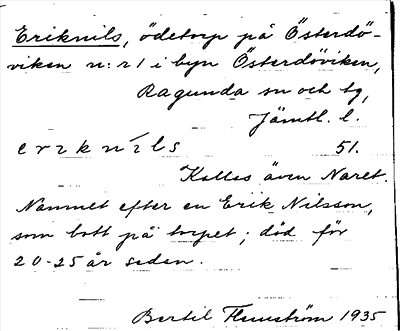 Eriknils, ödetorp på Österdö-
viken n:r 1 i byn Österdöviken,
Ragunda sn och tg,
Jämtl. l.
e r ɪ k n í l s 51.
Kallas även Naret.
Namnet efter en Erik Nilsson,
som bott på torpet; död för
20-25 år sedan.
Bertil Flemström 1935